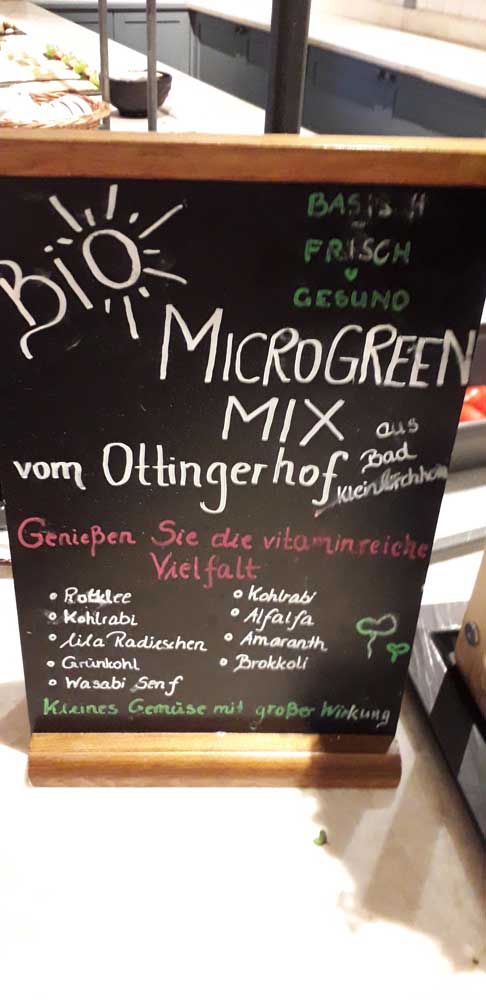 BiO
BASISCH
FRISCH
GESUND
MICROGREEN
MIX
vom Ottingerhof
aus
Bad
Kleinkirchheim
Genießen Sie die vitaminreiche
Vielfalt
• Rotklee
• Kohlrabi
• Lila Radieschen
• Grünkohl
• Wasabi Senf
• Kohlrabi
• Alfalfa
• Amaranth
• Brokkoli
Kleines Gemüse mit großer Wirkung